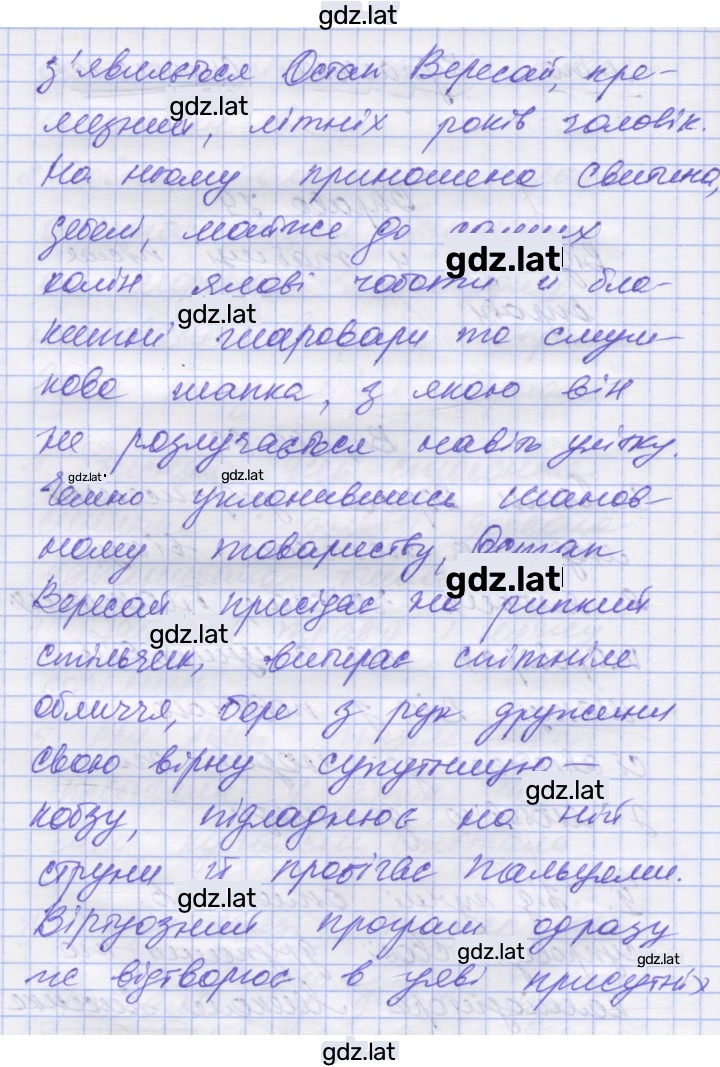 gdz.lat
з'являється Остап Вересай, кре-
gdz.lat
мезний, літніх років чоловік.
На ньому приношена свитина,
дебелі, майже до
gdz.lat
колін ялові чоботи й бла-
gdz.lat
китні шаровари та смуш-
кова шапка, з якою він
не розлучається навіть улітку.
gdz.lat
gdz.lat
Чемно уклонившись шанов-
ному товариству, Остап
gdz.lat
Вересай присідає на рипкий
gdz.lat
стільчик, витирає спітніле
обличчя, бере з рук дружини
свою вірну супутницю –
gdz.lat
кобзу, підладнює на ній
струни й пробігає пальцями.
gdz.lat
Віртуозний програш одразу
gdz.lat
gdz.lat
же відтворює в уяві присутніх
gdz.lat